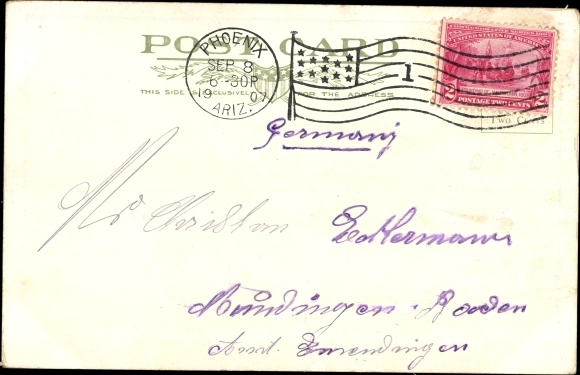 POST CARD
PHOENIX
SEP 8
6-30P
1907
ARIZ.
1
THIS SIDE EXCLUSIVELY FOR THE ADDRESS
UNITED STATES OF AMERICA
2 POSTAGE TWO CENTS 2
Two Cents
Germany
Christian
Mündingen. Baden
Amt. Emendingen